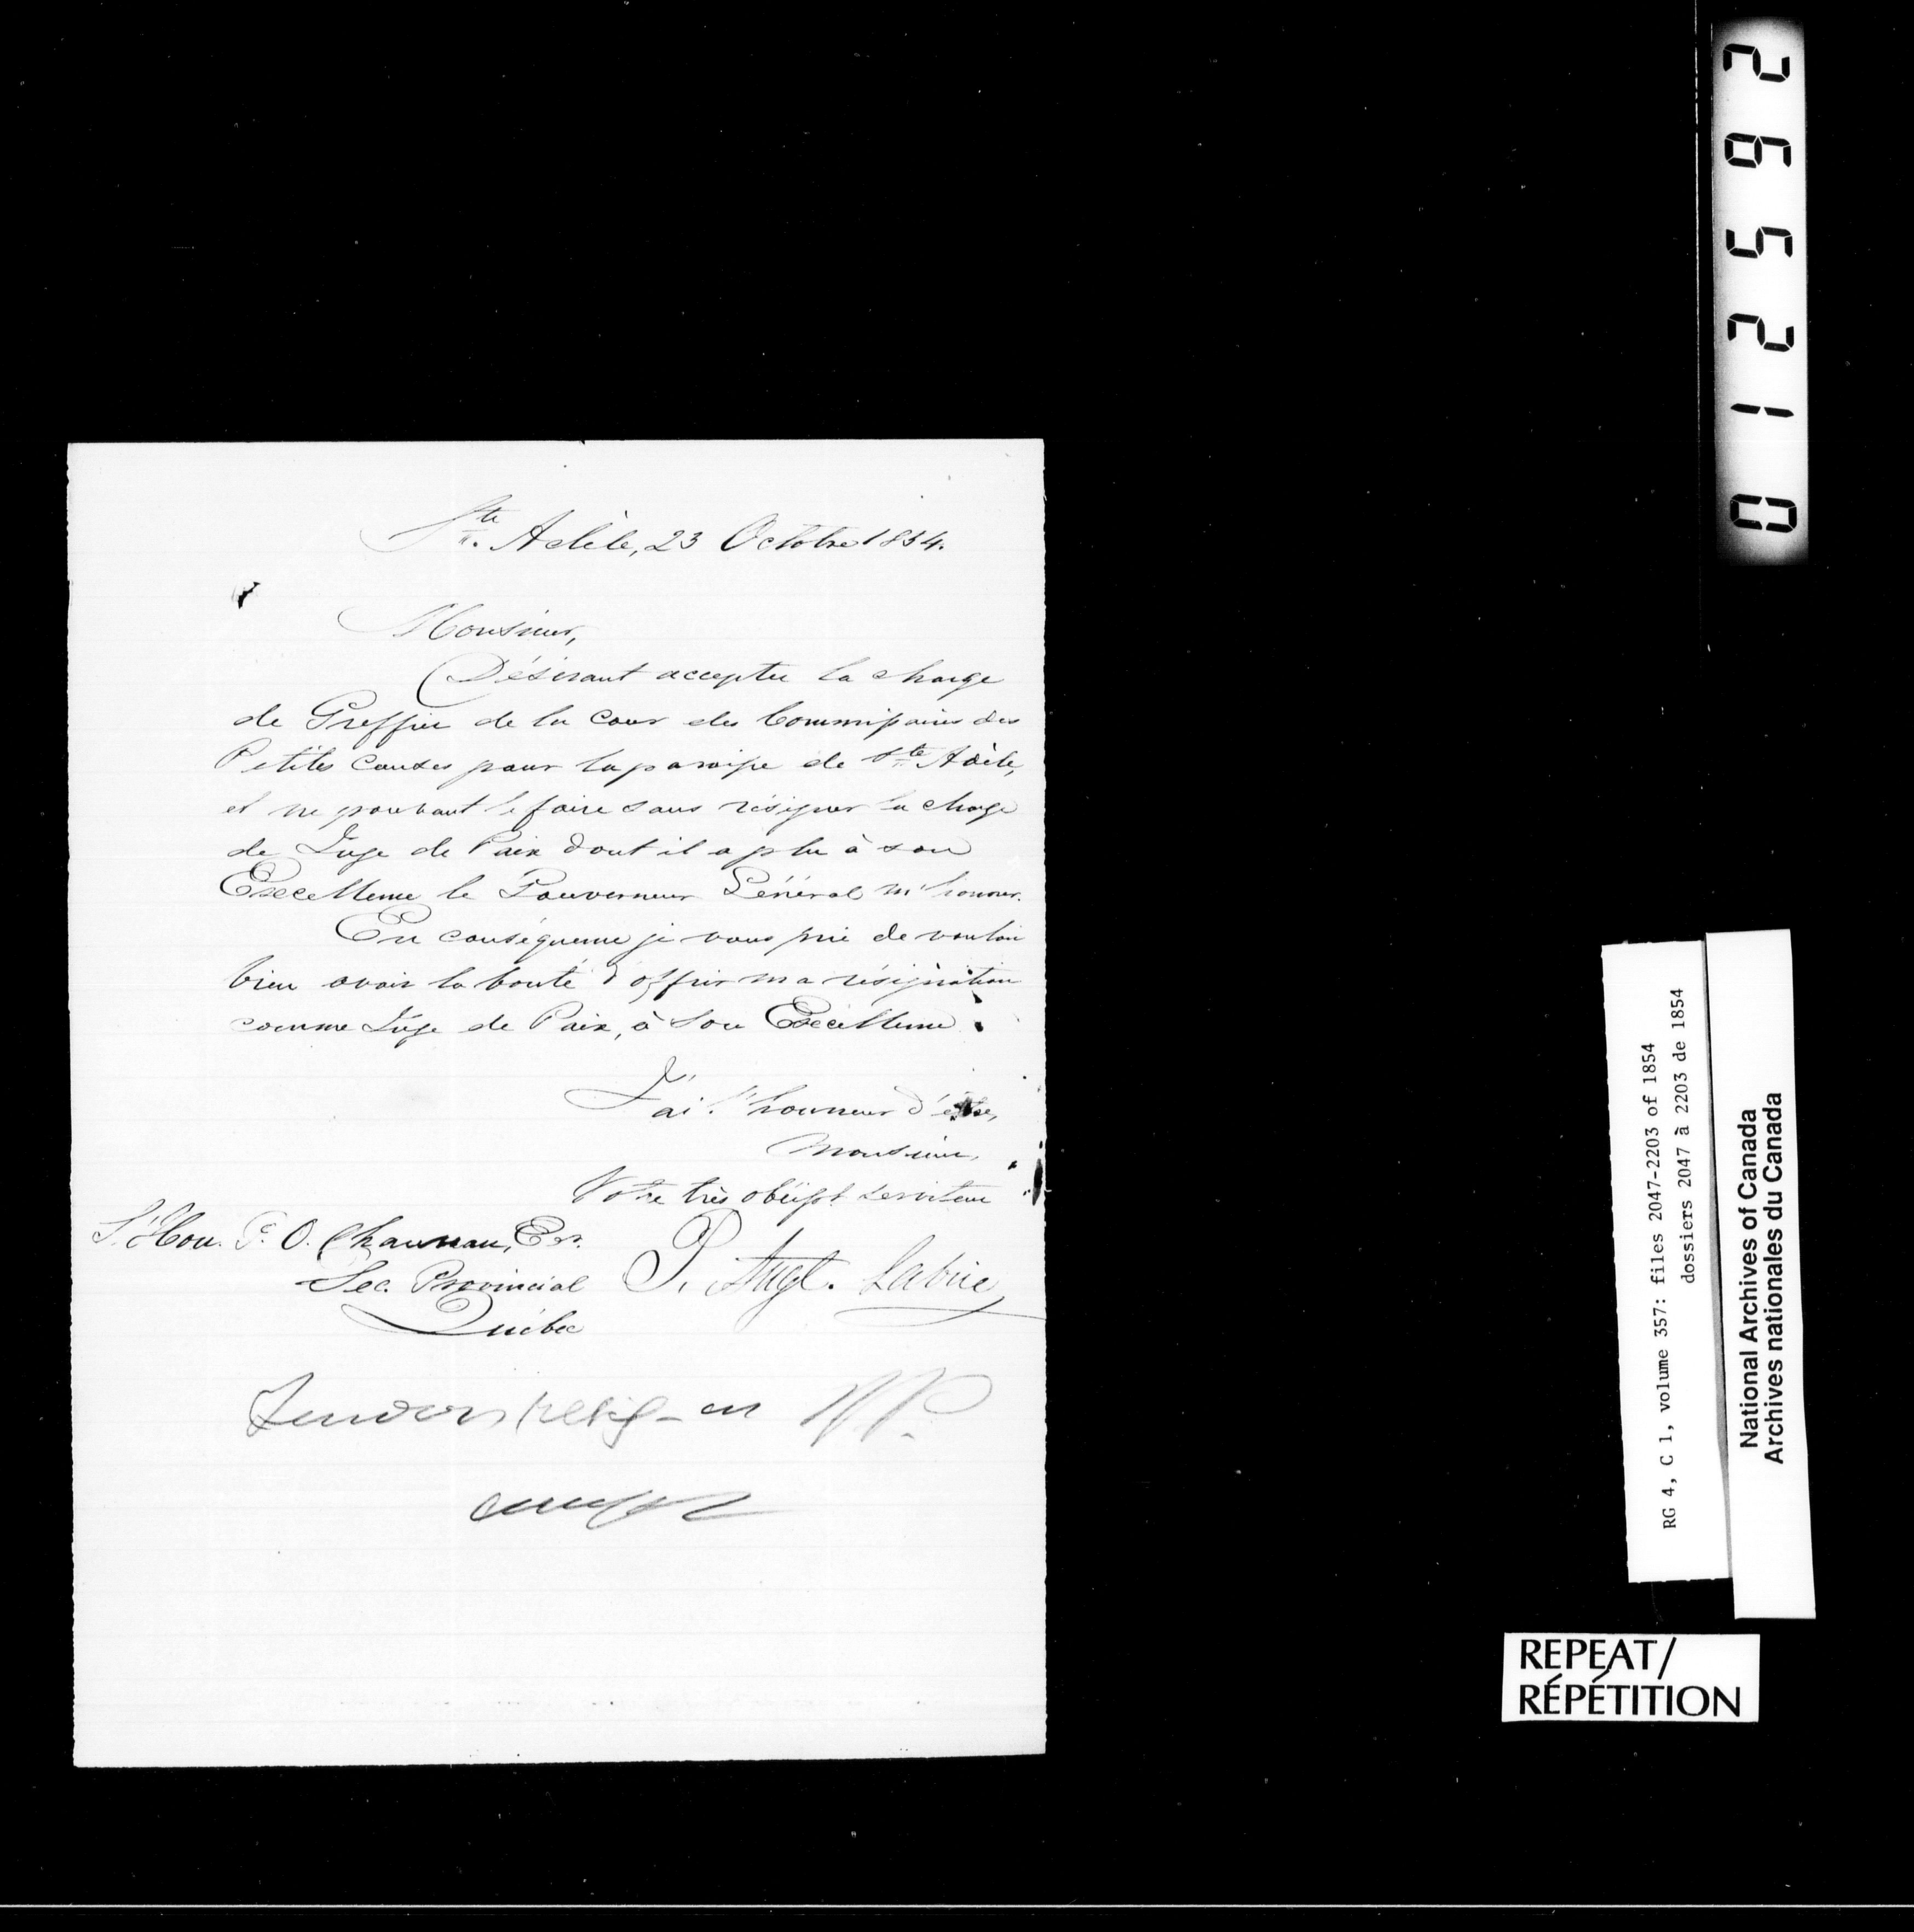 Ste. Adèle, 23 Octobre 1854.
Monsieur,
Désirant accepter la charge
de Greffier de la Cour des Commissaires des
Petites Causes pour la paroisse de Ste Adèle,
et ne pouvant le faire sans résigner la charge
de Juge de Paix dont il a plu à son
Excellence le Gouverneur Général m'honorer.
En conséquence je vous prie de vouloir
bien avoir la bonté d'offrir ma résignation
comme Juge de Paix, à Son Excellence.
J'ai l'honneur d'être,
Monsieur,
Votre très obéisst. serviteur
P. Augt. Labrie
L'Hon. P. O. Chauveau, Esr.
Sec. Provincial
Québec
as JP.
012592
RG 4, C 1, volume 357: files 2047-2203 of 1854
dossiers 2047 à 2203 de 1854
National Archives of Canada
Archives nationales du Canada
REPEAT/
RÉPÉTITION